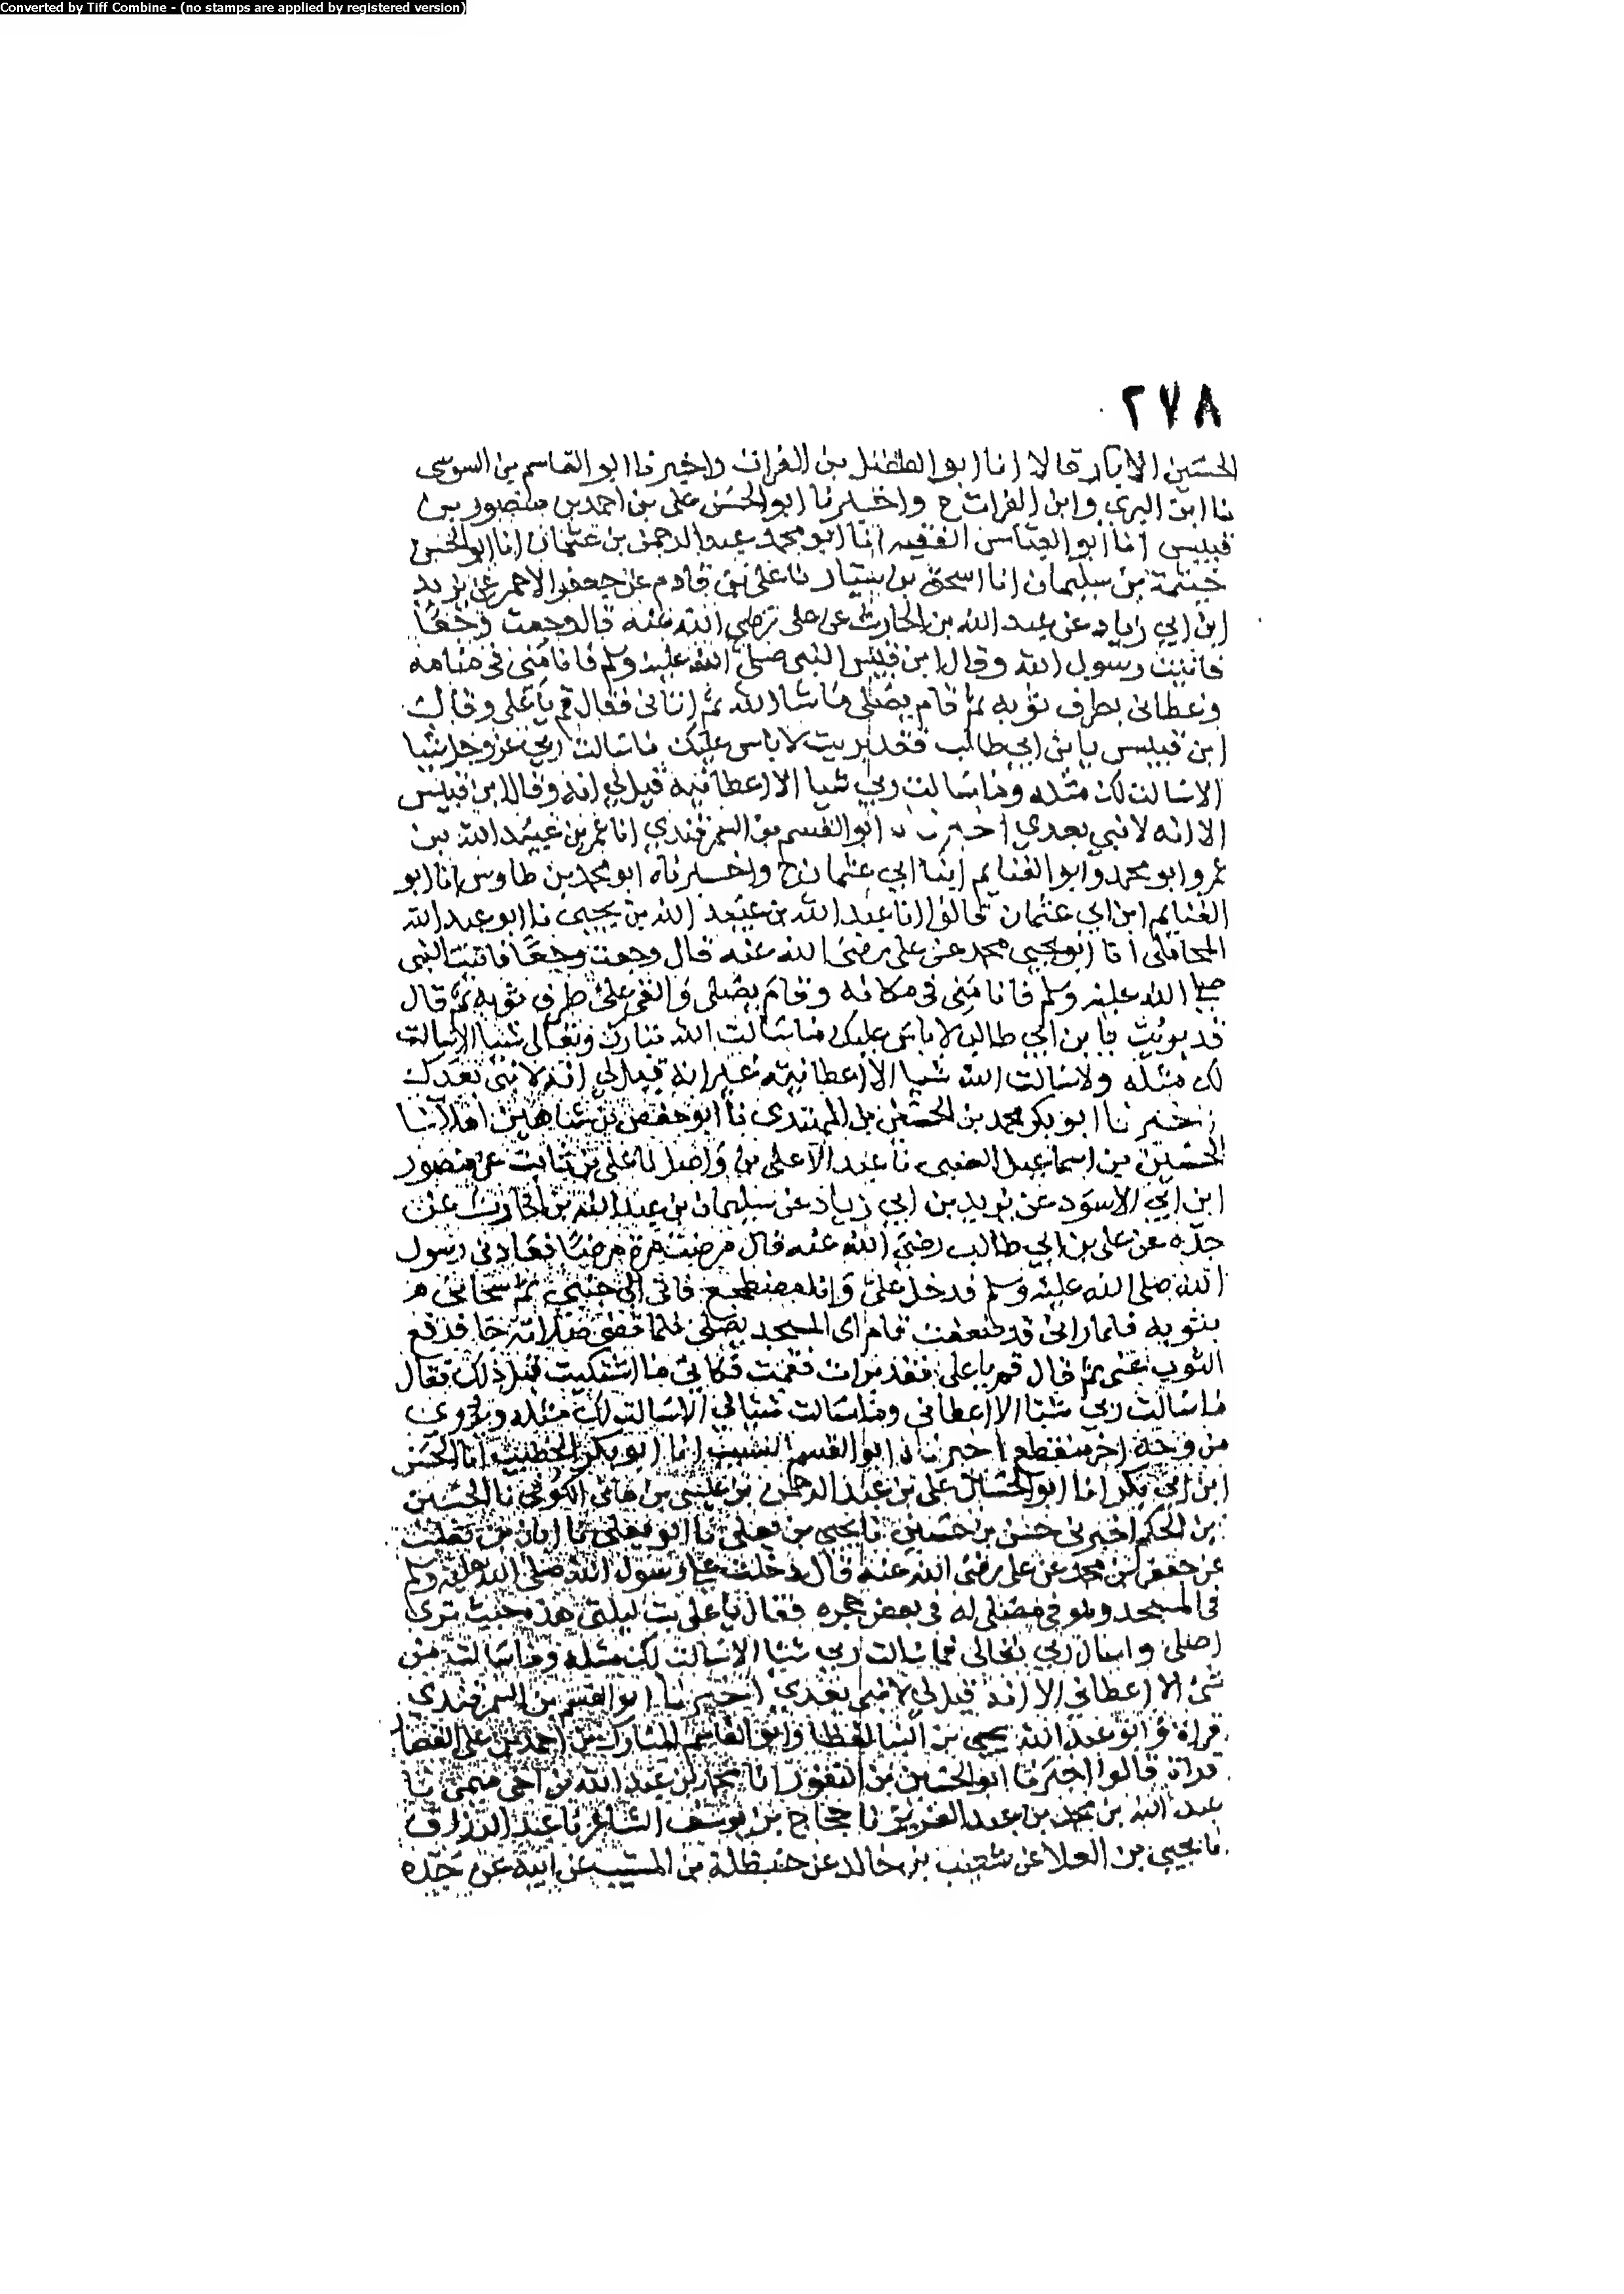 Converted by Tiff Combine - (no stamps are applied by registered version)
٢٧٨
الحسين الابار قالا انا ابو الفضل بن الفرات واخبرنا ابو القاسم بن السوسي
نا ابن البري وابن الفرات ح واخبرنا ابو الحسن علي بن احمد بن منصور بن
قبيس انا ابو العباس الفقيه انا ابو محمد عبد الرحمن بن عثمان انا ابو الحسن
خيثمة بن سليمان انا اسحق بن سيار نا علي بن قادم عن جعفر الاحمر عن يزيد
ابن ابي زياد عن عبد الله بن الحارث عن علي رضي الله عنه قال وجعت وجعًا
فاتيت رسول الله وقال ابن قبيس النبي صلى الله عليه وسلم فانامني في منامه
وغطاني بطرف ثوبه ثم قام يصلي ما شا الله ثم اتاني فقال قم يا علي وقال
ابن قبيس يا بن ابي طالب فقد بريت لا باس عليك ما سالت ربي عز وجل شيا
الا سالت لك مثله وما سالت ربي شيا الا اعطانيه قيل لي انه وقال ابن قبيس
الا انه لا نبي بعدي اخبرنا ابو القسم بن السمرقندي انا عمر بن عبيد الله بن
عمر وابو محمد وابو الغنايم ابنا ابي عثمان ح واخبرناه ابو محمد بن طاوس انا ابو
الغنايم ابن ابي عثمان قالوا انا عبد الله بن عبيد الله بن يحيى نا ابو عبد الله
المحاملي انا ابو يحيى محمد عن علي رضي الله عنه قال وجعت وجعًا فاتيت النبي
صلى الله عليه وسلم فانامني في مكانه وقام يصلي والقى علي طرف ثوبه ثم قال
قد بريت يا بن ابي طالب لا باس عليك ما سالت الله تبارك وتعالى شيا الا سالت
لك مثله ولا سالت الله شيا الا اعطانيه غير انه قيل لي انه لا نبي بعدك
اخبرنا ابو بكر محمد بن الحسين بن نا ابو حفص بن شاهين املا نا
الحسين بن اسماعيل الضبي نا عبد الاعلى بن واصل نا علي بن ثابت عن منصور
ابن ابي الاسود عن يزيد بن ابي زياد عن سليمان بن عبد الله بن الحارث عن
جده عن علي بن ابي طالب رضي الله عنه قال مرضت مرة مرضًا فعادني رسول
الله صلى الله عليه وسلم فدخل علي وانا مضطجع فاتى الى جنبي ثم سجاني
بثوبه فلما راني قد ضعفت قام الى المسجد يصلي فلما قضى صلاته جا فرفع
الثوب عني ثم قال قم يا علي فقد برات فقمت فكاني ما اشتكيت قبل ذلك فقال
ما سالت ربي شيا الا اعطاني وما سالت شيا لي الا سالت لك مثله وقد روي
من وجه اخر منقطع اخبرناه ابو القسم النسيب انا ابو بكر الخطيب انا الحسن
ابن ابي بكر انا ابو الحسين علي بن عبد الرحمن بن عيسى بن ماتى الكوفي نا الحسين
بن الحكم اخبرني حسن بن حسين نا يحيى بن يعلى نا ابان بن تغلب
عن جعفر بن محمد عن علي رضي الله عنه قال دخلت على رسول الله صلى الله عليه وسلم
في المسجد وهو في مصلى له في بعض حجره فقال يا علي بت ليلتي هذه حيث ترى
اصلي واسال ربي تعالى فما سالت ربي شيا الا سالت لك مثله وما سالته من
شئ الا اعطاني الا انه قيل لي لا نبي بعدي اخبرنا ابو القسم بن السمرقندي
قراة وابو عبد الله يحيى بن البنا لفظا وابو القاسم المبارك بن احمد بن علي القصار
قراة قالوا اخبرنا ابو الحسين بن النقور انا محمد بن عبد الله بن اخي ميمي نا
عبد الله بن محمد بن عبد العزيز نا حجاج بن يوسف الشاعر نا عبد الرزاق
نا يحيى بن العلا عن شعيب بن خالد عن حنظلة بن المسيب عن ابيه عن جده